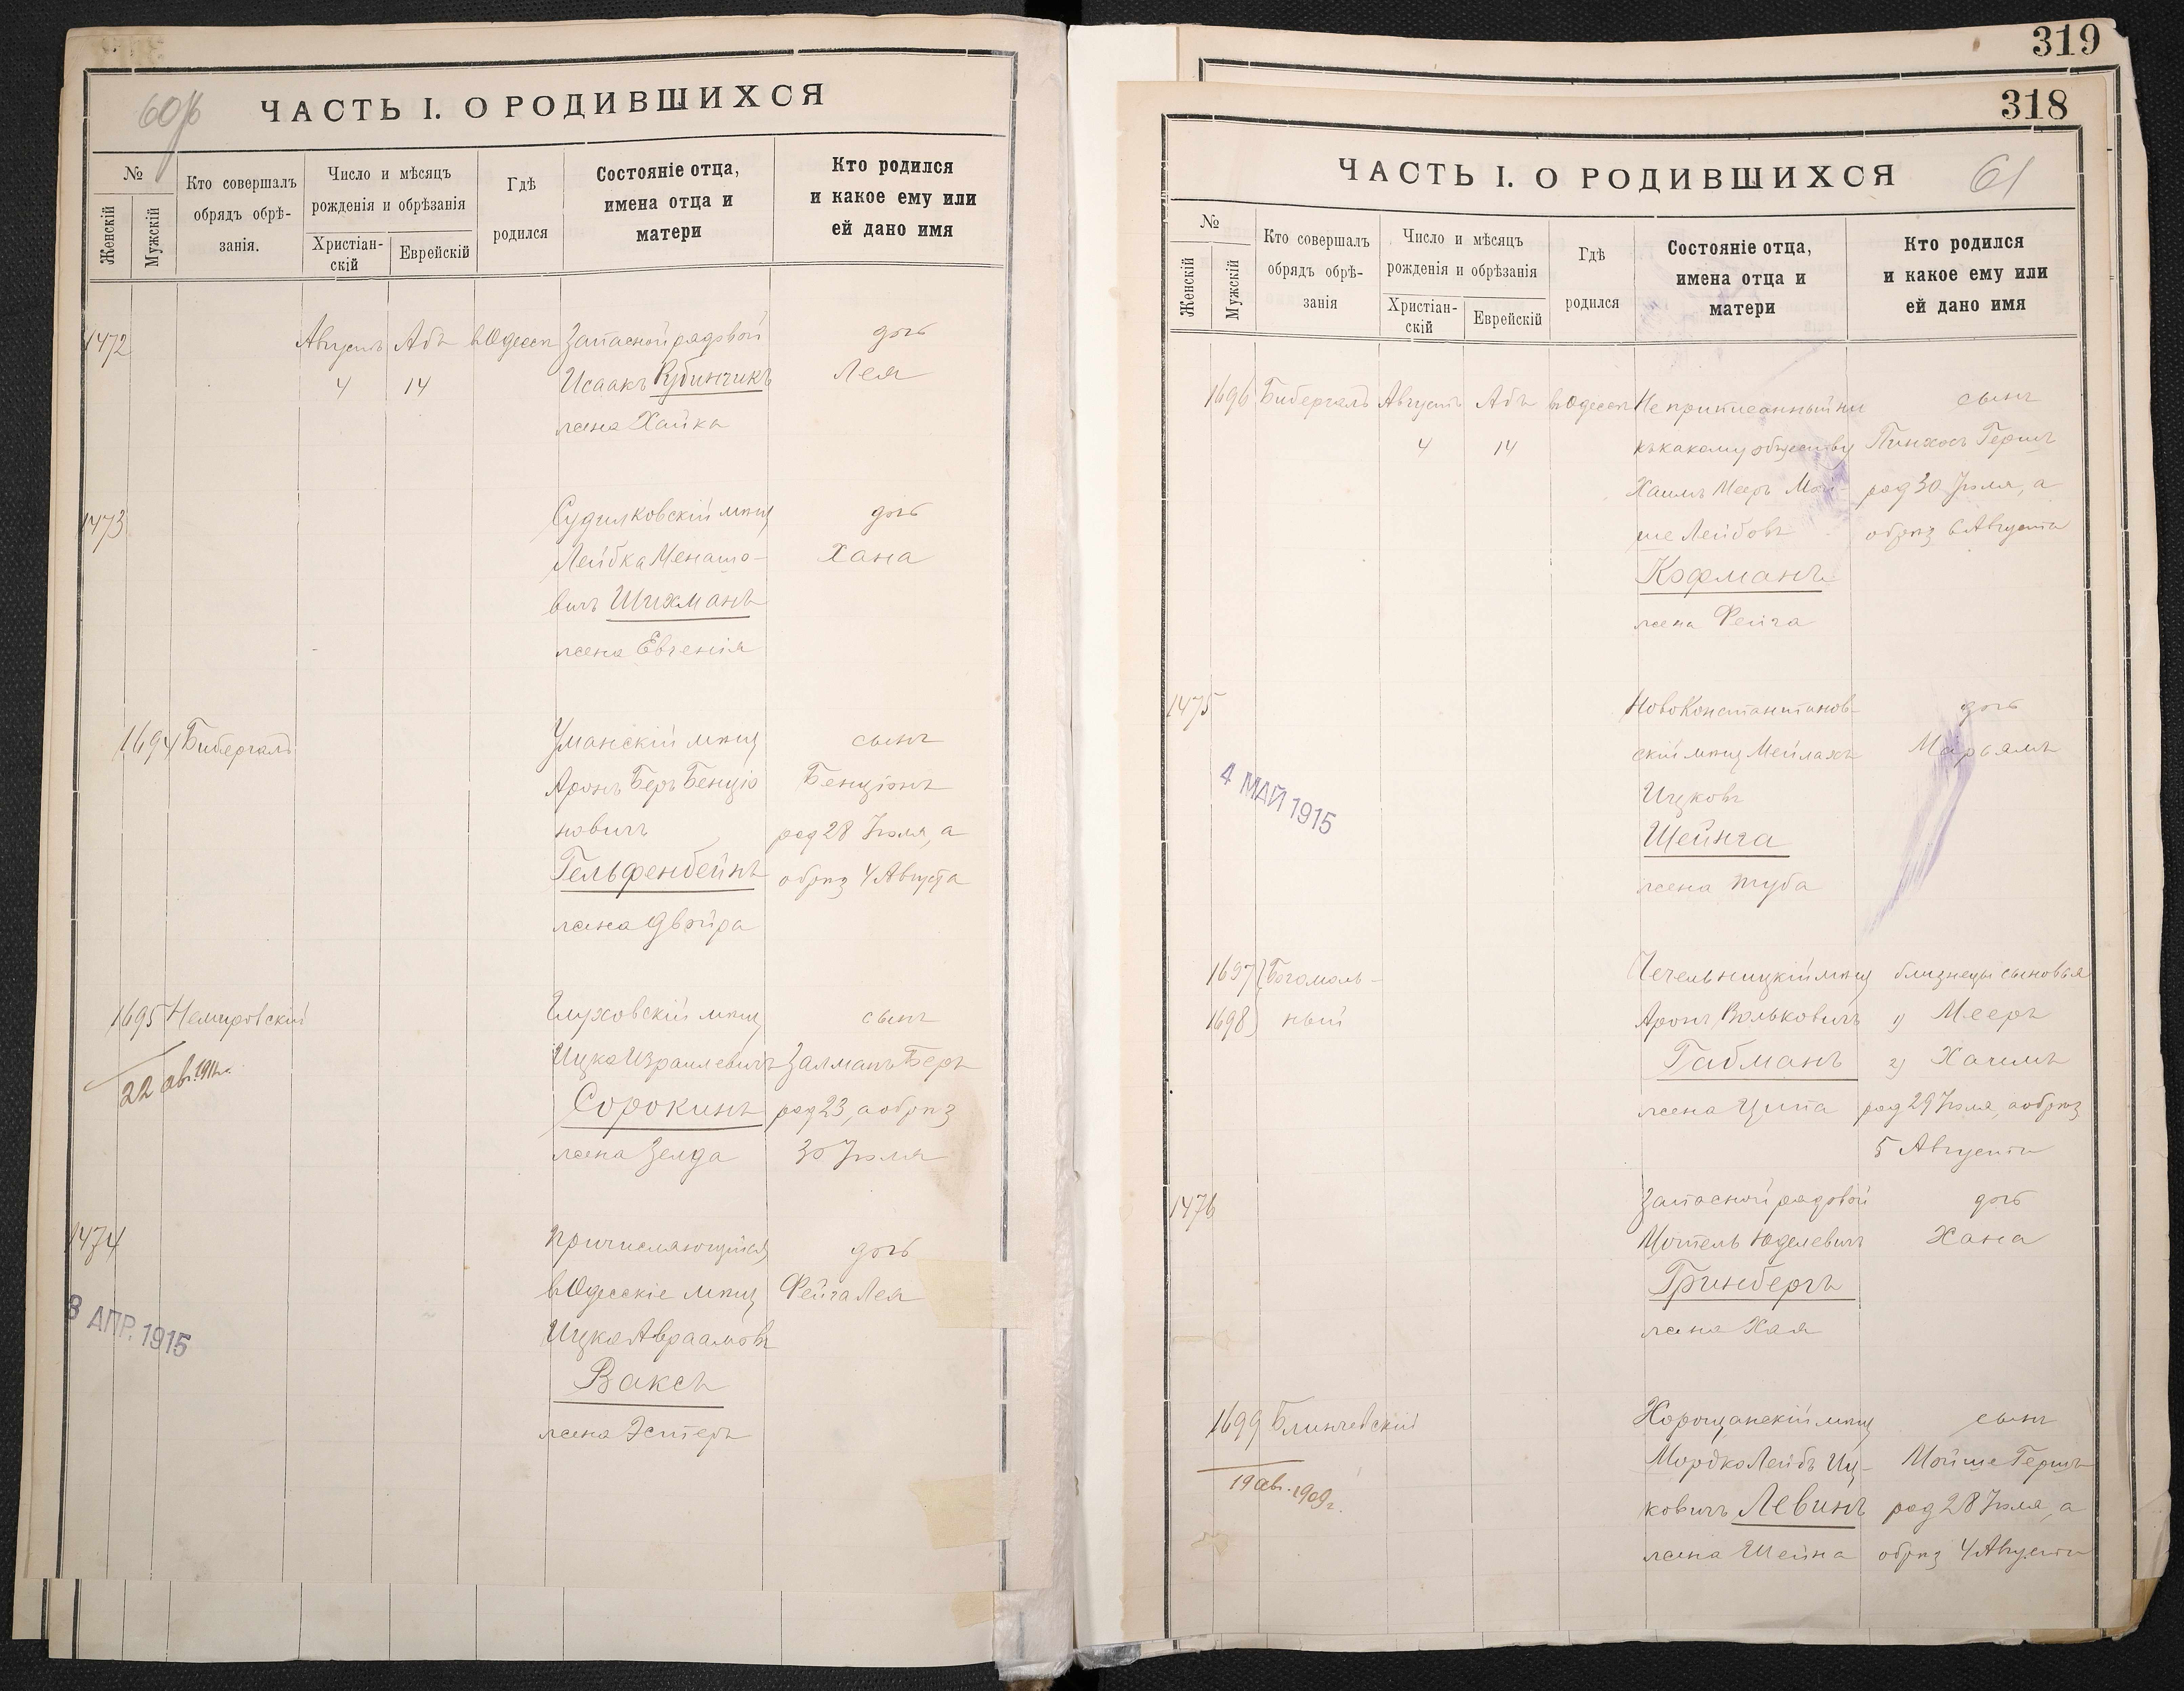 60 об
ЧАСТЬ I. О РОДИВШИХСЯ
№
Женскій
Мужскій
Кто совершалъ
обрядъ обрѣ-
занія.
Число и мѣсяцъ
рожденія и обрѣзанія
Христіан-
скій
Еврейскій
Гдѣ
родился
Состояніе отца,
имена отца и
матери
Кто родился
и какое ему или
ей дано имя
1472 Августъ Абъ въ Одессѣ Запасной рядовой дочь
4 14 Исаакъ Рубинчикъ Лея
жена Хайка
1473 Судилковскій мѣщ дочь
Лейбка Менашо- Хана
вичъ Шихманъ
жена Евгенія
1694 Бибергалъ Уманскій мѣщ сынъ
Аронъ Беръ Бенціо Бенціонъ
новичъ род 28 Іюля, а
Гельфенбейнъ обрѣз 4 Августа
жена Двойра
1695 Немировскій Глуховскій мѣщ сынъ
Ицко Израилевичъ Залманъ Беръ
22 авг. 1911г. Сорокинъ род 23, а обрѣз
жена Зелда 30 Іюля
1474 Причисляющійся дочь
въ Одесскіе мѣщ Фейга Лея
8 АПР. 1915
Ицко Авраамовъ
Ваксъ
жена Эстеръ
319
318
ЧАСТЬ I. О РОДИВШИХСЯ 61
№
Женскій
Мужскій
Кто совершалъ
обрядъ обрѣ-
занія
Число и мѣсяцъ
рожденія и обрѣзанія
Христіан-
скій
Еврейскій
Гдѣ
родился
Состояніе отца,
имена отца и
матери
Кто родился
и какое ему или
ей дано имя
1696 Бибергалъ Августъ Абъ въ Одессѣ Не приписанный ни сынъ
4 14 къ какому обществу Пинхосъ Гершъ
Хаимъ Мееръ Мой- род 30 Іюля, а
ше Лейбовъ обрѣз 6 Августа
Кофманъ
жена Фейга
1475 Новоконстантинов- дочь
скій мѣщ Мейлахъ Марьямъ
4 МАЙ 1915
Ицковъ
Шейнга
жена Туба
1697 Богомоль- Чечельницкій мѣщ близнецы сыновья
1698 ный Аронъ Вольковичъ 1) Мееръ
Габманъ 2) Хаимъ
жена Ципа род 29 Іюля, а обрѣз
5 Августа
1476 Запасной рядовой дочь
Мотель Юделевичъ Хана
Гринбергъ
жена Хая
1699 Блинчевскій Хорощанскій мѣщ сынъ
Мордко Лейбъ Иц- Мойше Гершъ
19 авг. 1909г. ковичъ Левинъ род 28 Іюля, а
жена Шейна обрѣз 4 Августа